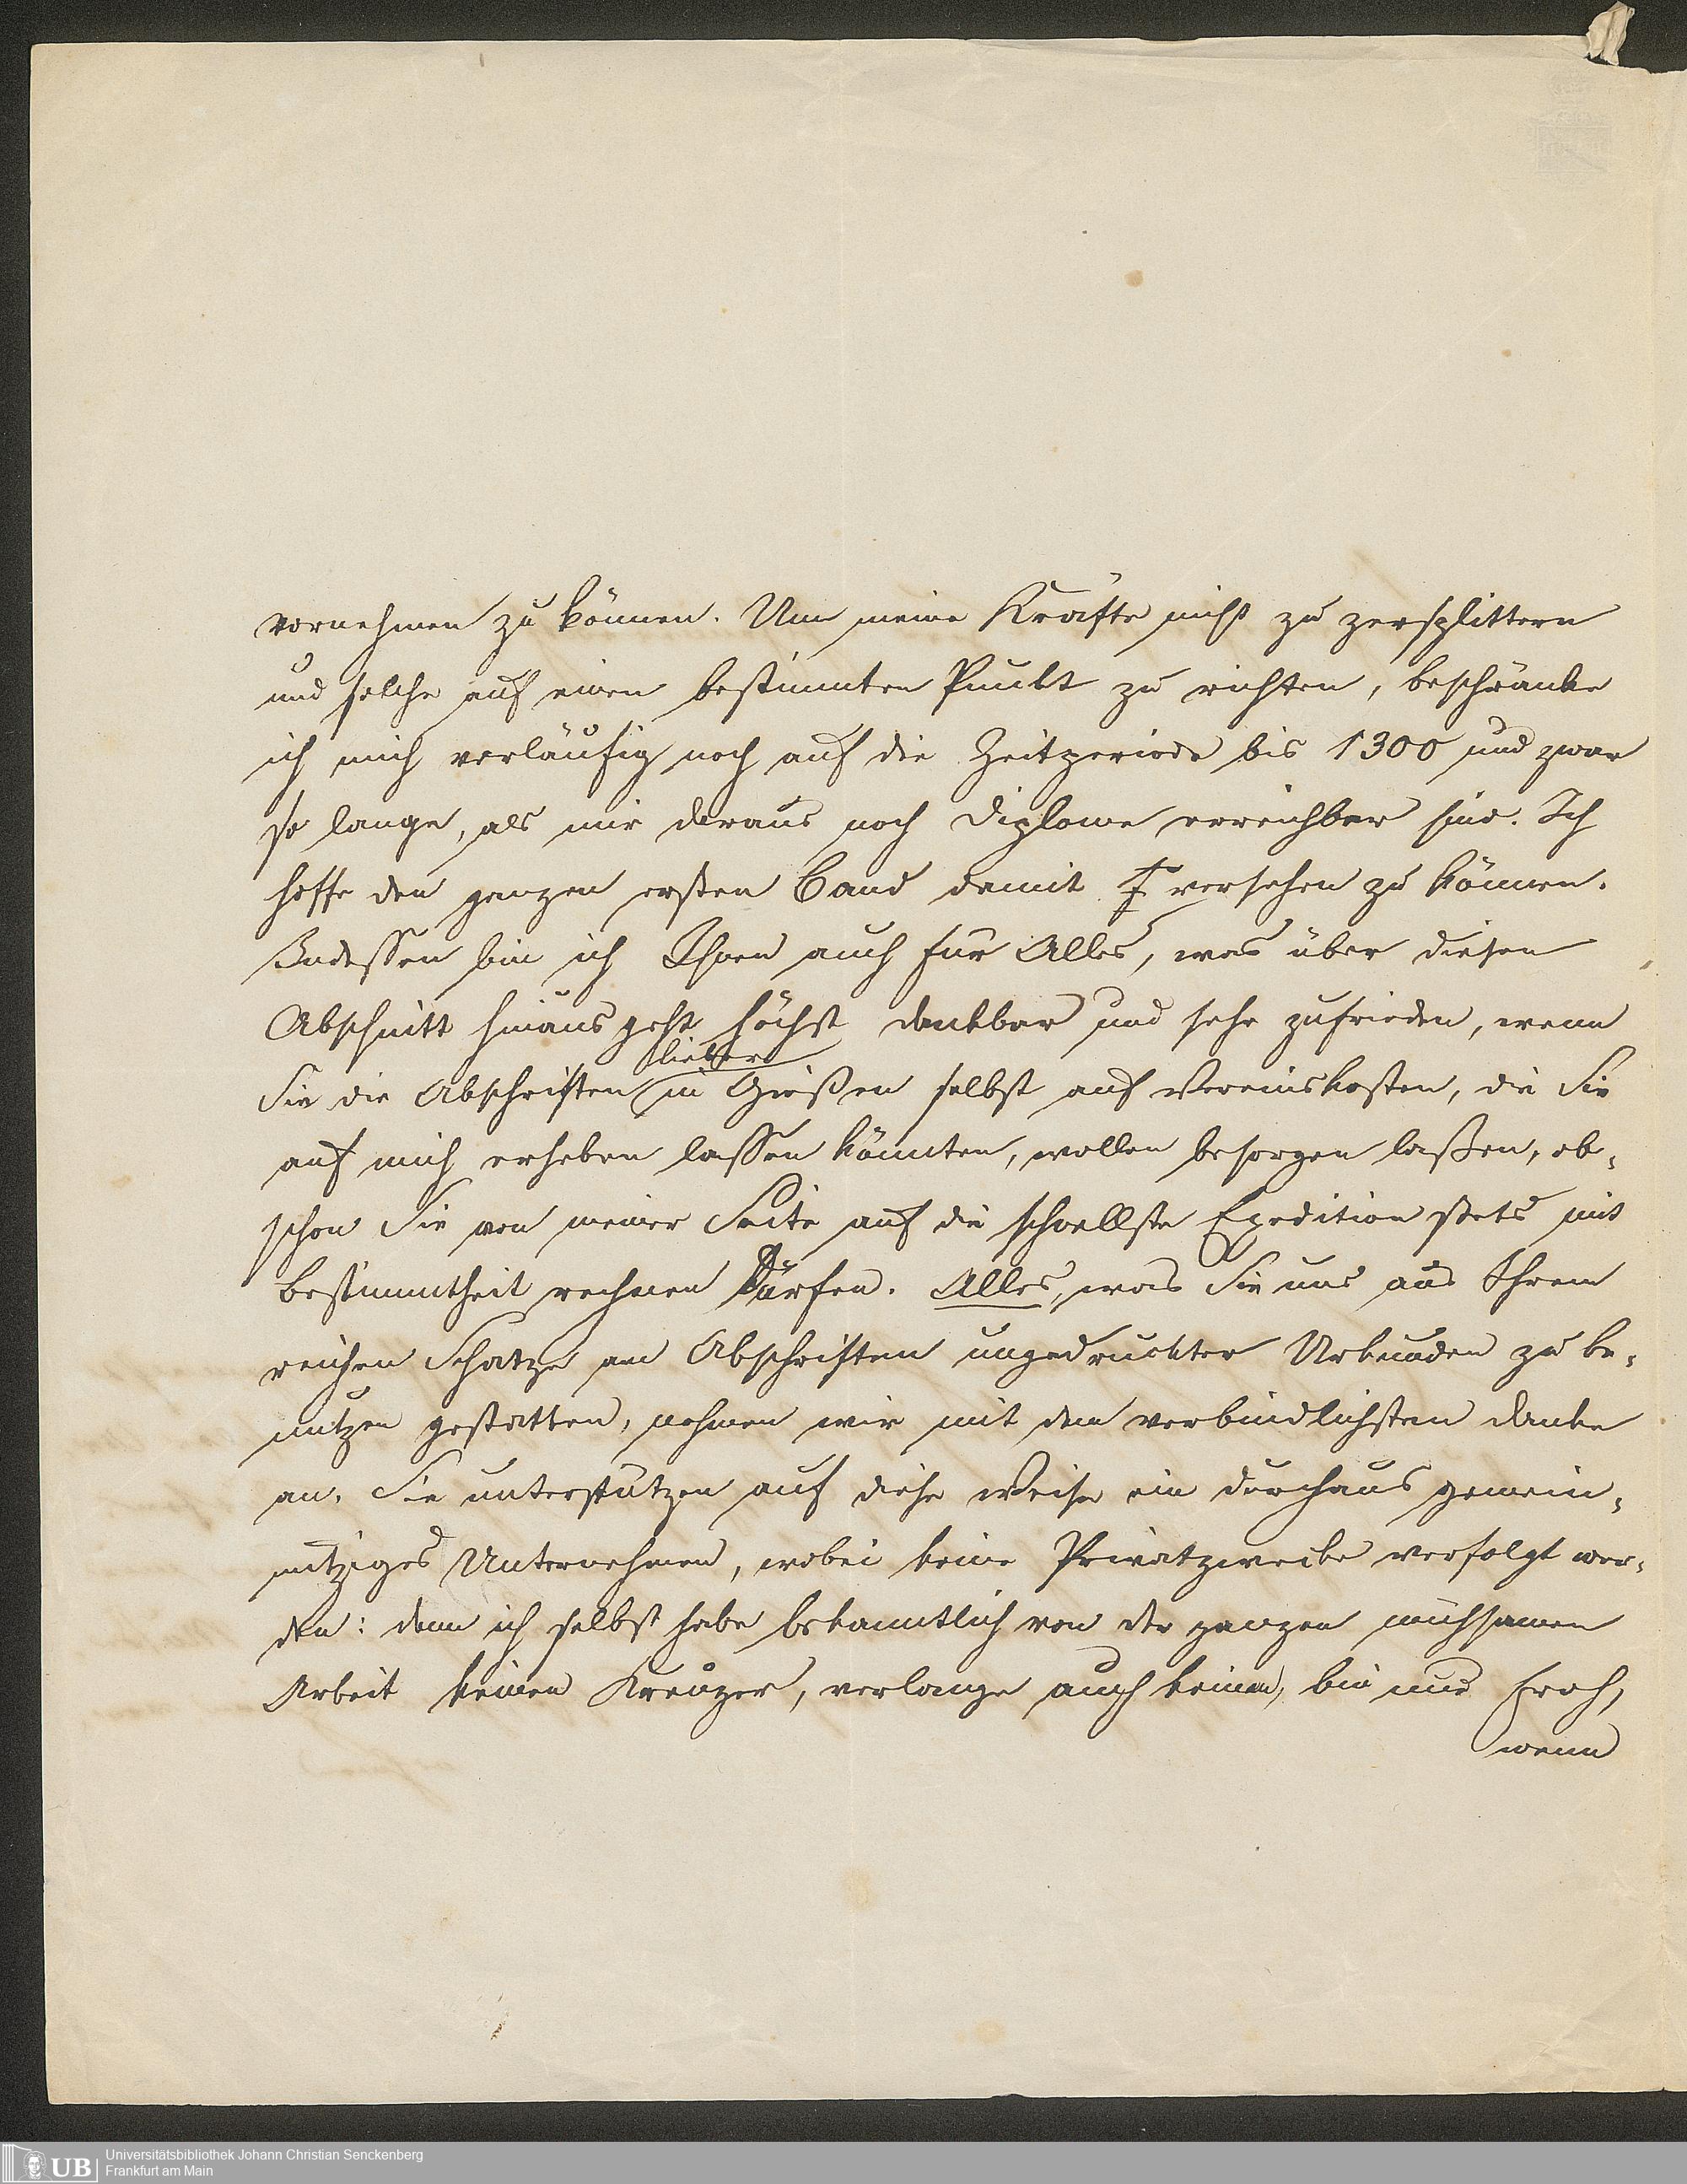 vornehmen zu können. Um meine Kräfte nicht zu zersplittern
und solche auf einen bestimmten Punkt zu richten, beschränke
ich mich vorläufig noch auf die Zeitperiode bis 1300 und zwar
so lange, als mir daraus noch Diplome erreichbar sind. Ich
hoffe den ganzen ersten Band damit versehen zu können.
Indessen bin ich Ihnen auch für Alles, was über diesen
Abschnitt hinaus geht höchst dankbar und sehr zufrieden, wenn
lieber
Sie die Abschriften in Gießen selbst auf Vereinskosten, die Sie
auf mich erheben lassen könnten, wollen besorgen laßen, ob-
schon Sie von meiner Seite auf die schnellste Expedition stets mit
Bestimmtheit rechnen dürfen. Alles, was Sie uns aus Ihrem
reichen Schatze an Abschriften ungedruckter Urkunden zu be-
nutzen gestatten, nehmen wir mit dem verbindlichsten Danke
an. Sie unterstützen auf diese Weise ein durchaus gemein-
nütziges Unternehmen, wobei keine Privatzwecke verfolgt wer-
den: denn ich selbst habe bekanntlich von der ganzen mühsamen
Arbeit keinen Kreuzer, verlange auch keinen, bin nur froh,
wenn
UB
Universitätsbibliothek Johann Christian Senckenberg
Frankfurt am Main